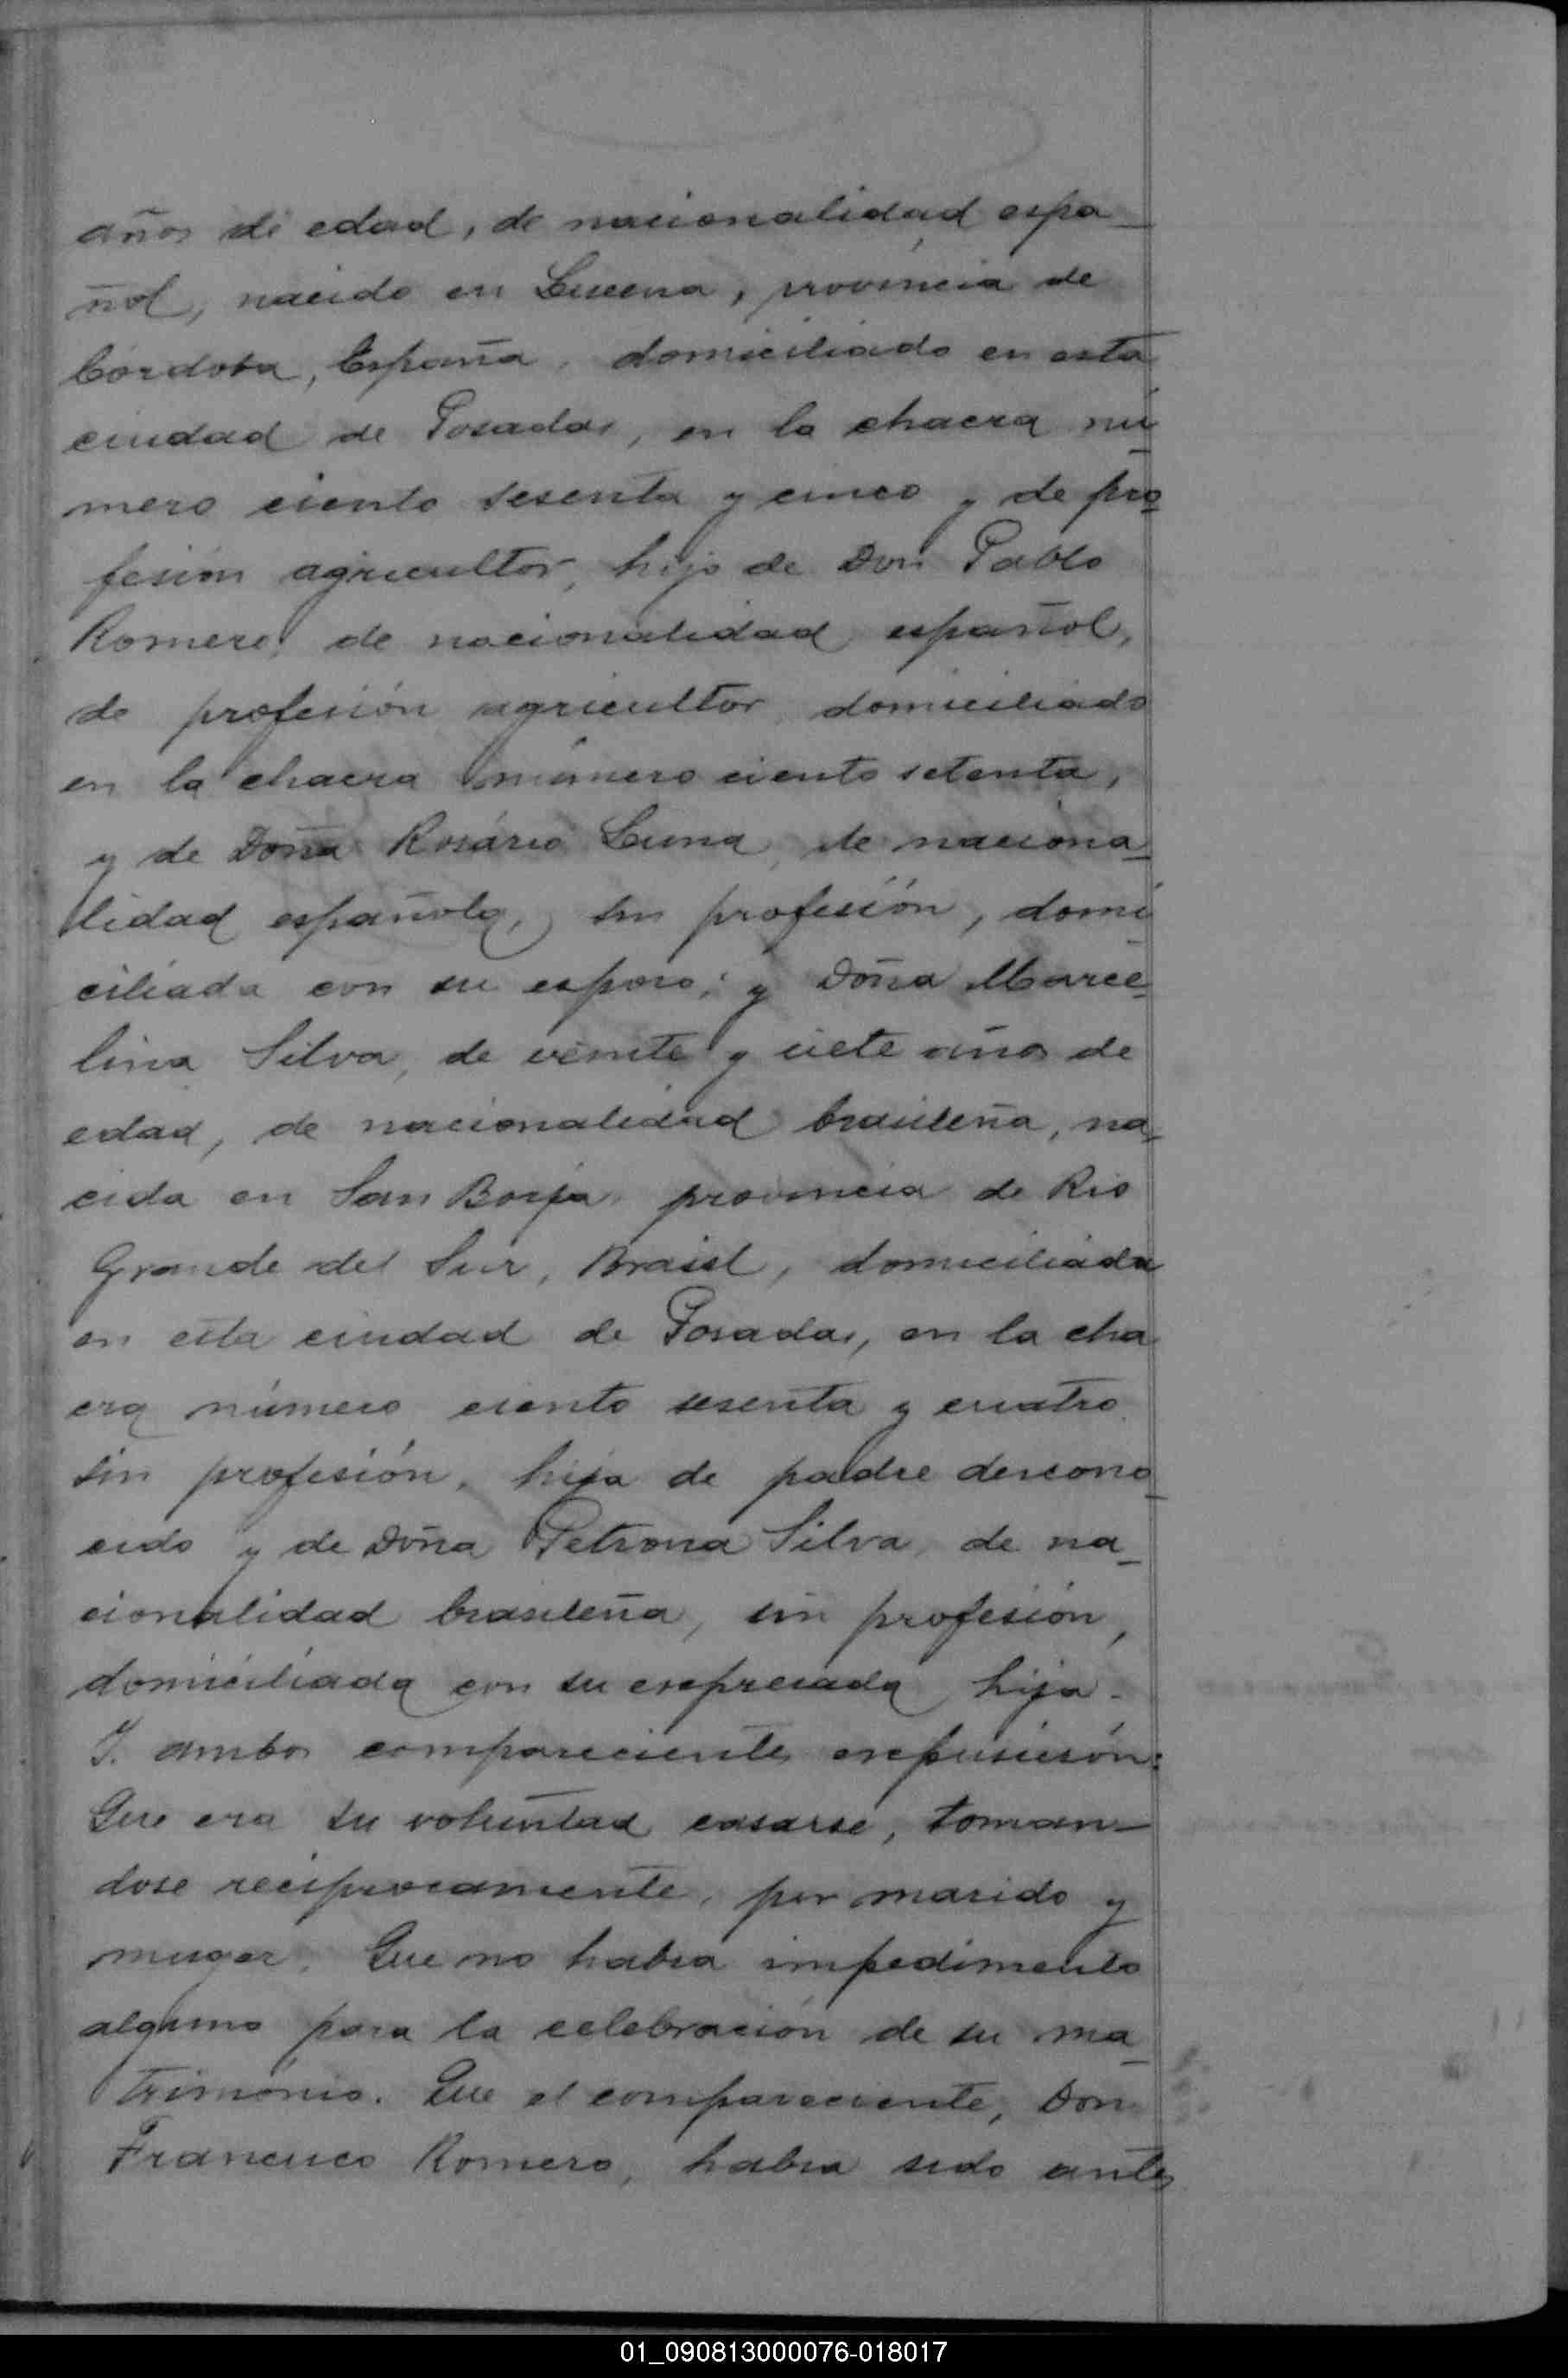 años de edad, de nacionalidad espa_
ñol, nacido en Lucena, provincia de
Córdoba, España, domiciliado en esta
ciudad de Posadas, en la chacra nú_
mero ciento sesenta y cinco y de pro_
fesión agricultor, hijo de Don Pablo
Romero, de nacionalidad español,
de profesión agricultor, domiciliado
en la chacra número ciento setenta,
y de Doña Rosário Luna, de naciona_
lidad española, sin profesión, domi_
ciliada con su esposo; y Doña Marce_
lina Silva, de veinte y siete años de
edad, de nacionalidad brasileña, na_
cida en San Borja, provincia de Rio
Grande del Sur, Brasil, domiciliada
en esta ciudad de Posadas, en la cha
cra número ciento sesenta y cuatro,
sin profesión, hija de padre descono_
cido y de Doña Petrona Silva, de na_
cionalidad brasileña, sin profesión,
domiciliada con su expresada hija.
Y. ambos comparecientes expusierón:
Que era su voluntad casarse, toman_
dose reciprocamente, por marido y
muger. Que no habia impedimento
alguno para la celebración de su ma_
trimónio. Que el compareciente, Don
Francisco Romero, habia sido antes
01_090813000076-018017